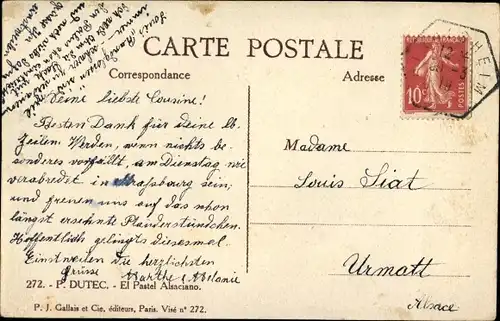 CARTE POSTALE
Correspondance
Adresse
HEIM
10c
POSTES
Meine liebste Cousine!
Besten Dank für deine lb.
Zeilen. Werden, wenn nichts be-
sonderes vorfällt, am Dienstag, wie
verabredet in Strassbourg sein,
und freuen uns auf das schon
längst ersehnte Plauderstündchen.
Hoffentlich gelingts diesesmal.
Einstweilen die herzlichsten
Grüsse Marthe & Melanie
Madame
Louis Siat
Urmatt
Alsace
272. - P. DUTEC. - El Pastel Alsaciano.
P. J. Gallais et Cie, éditeurs, Paris. Visé n° 272.